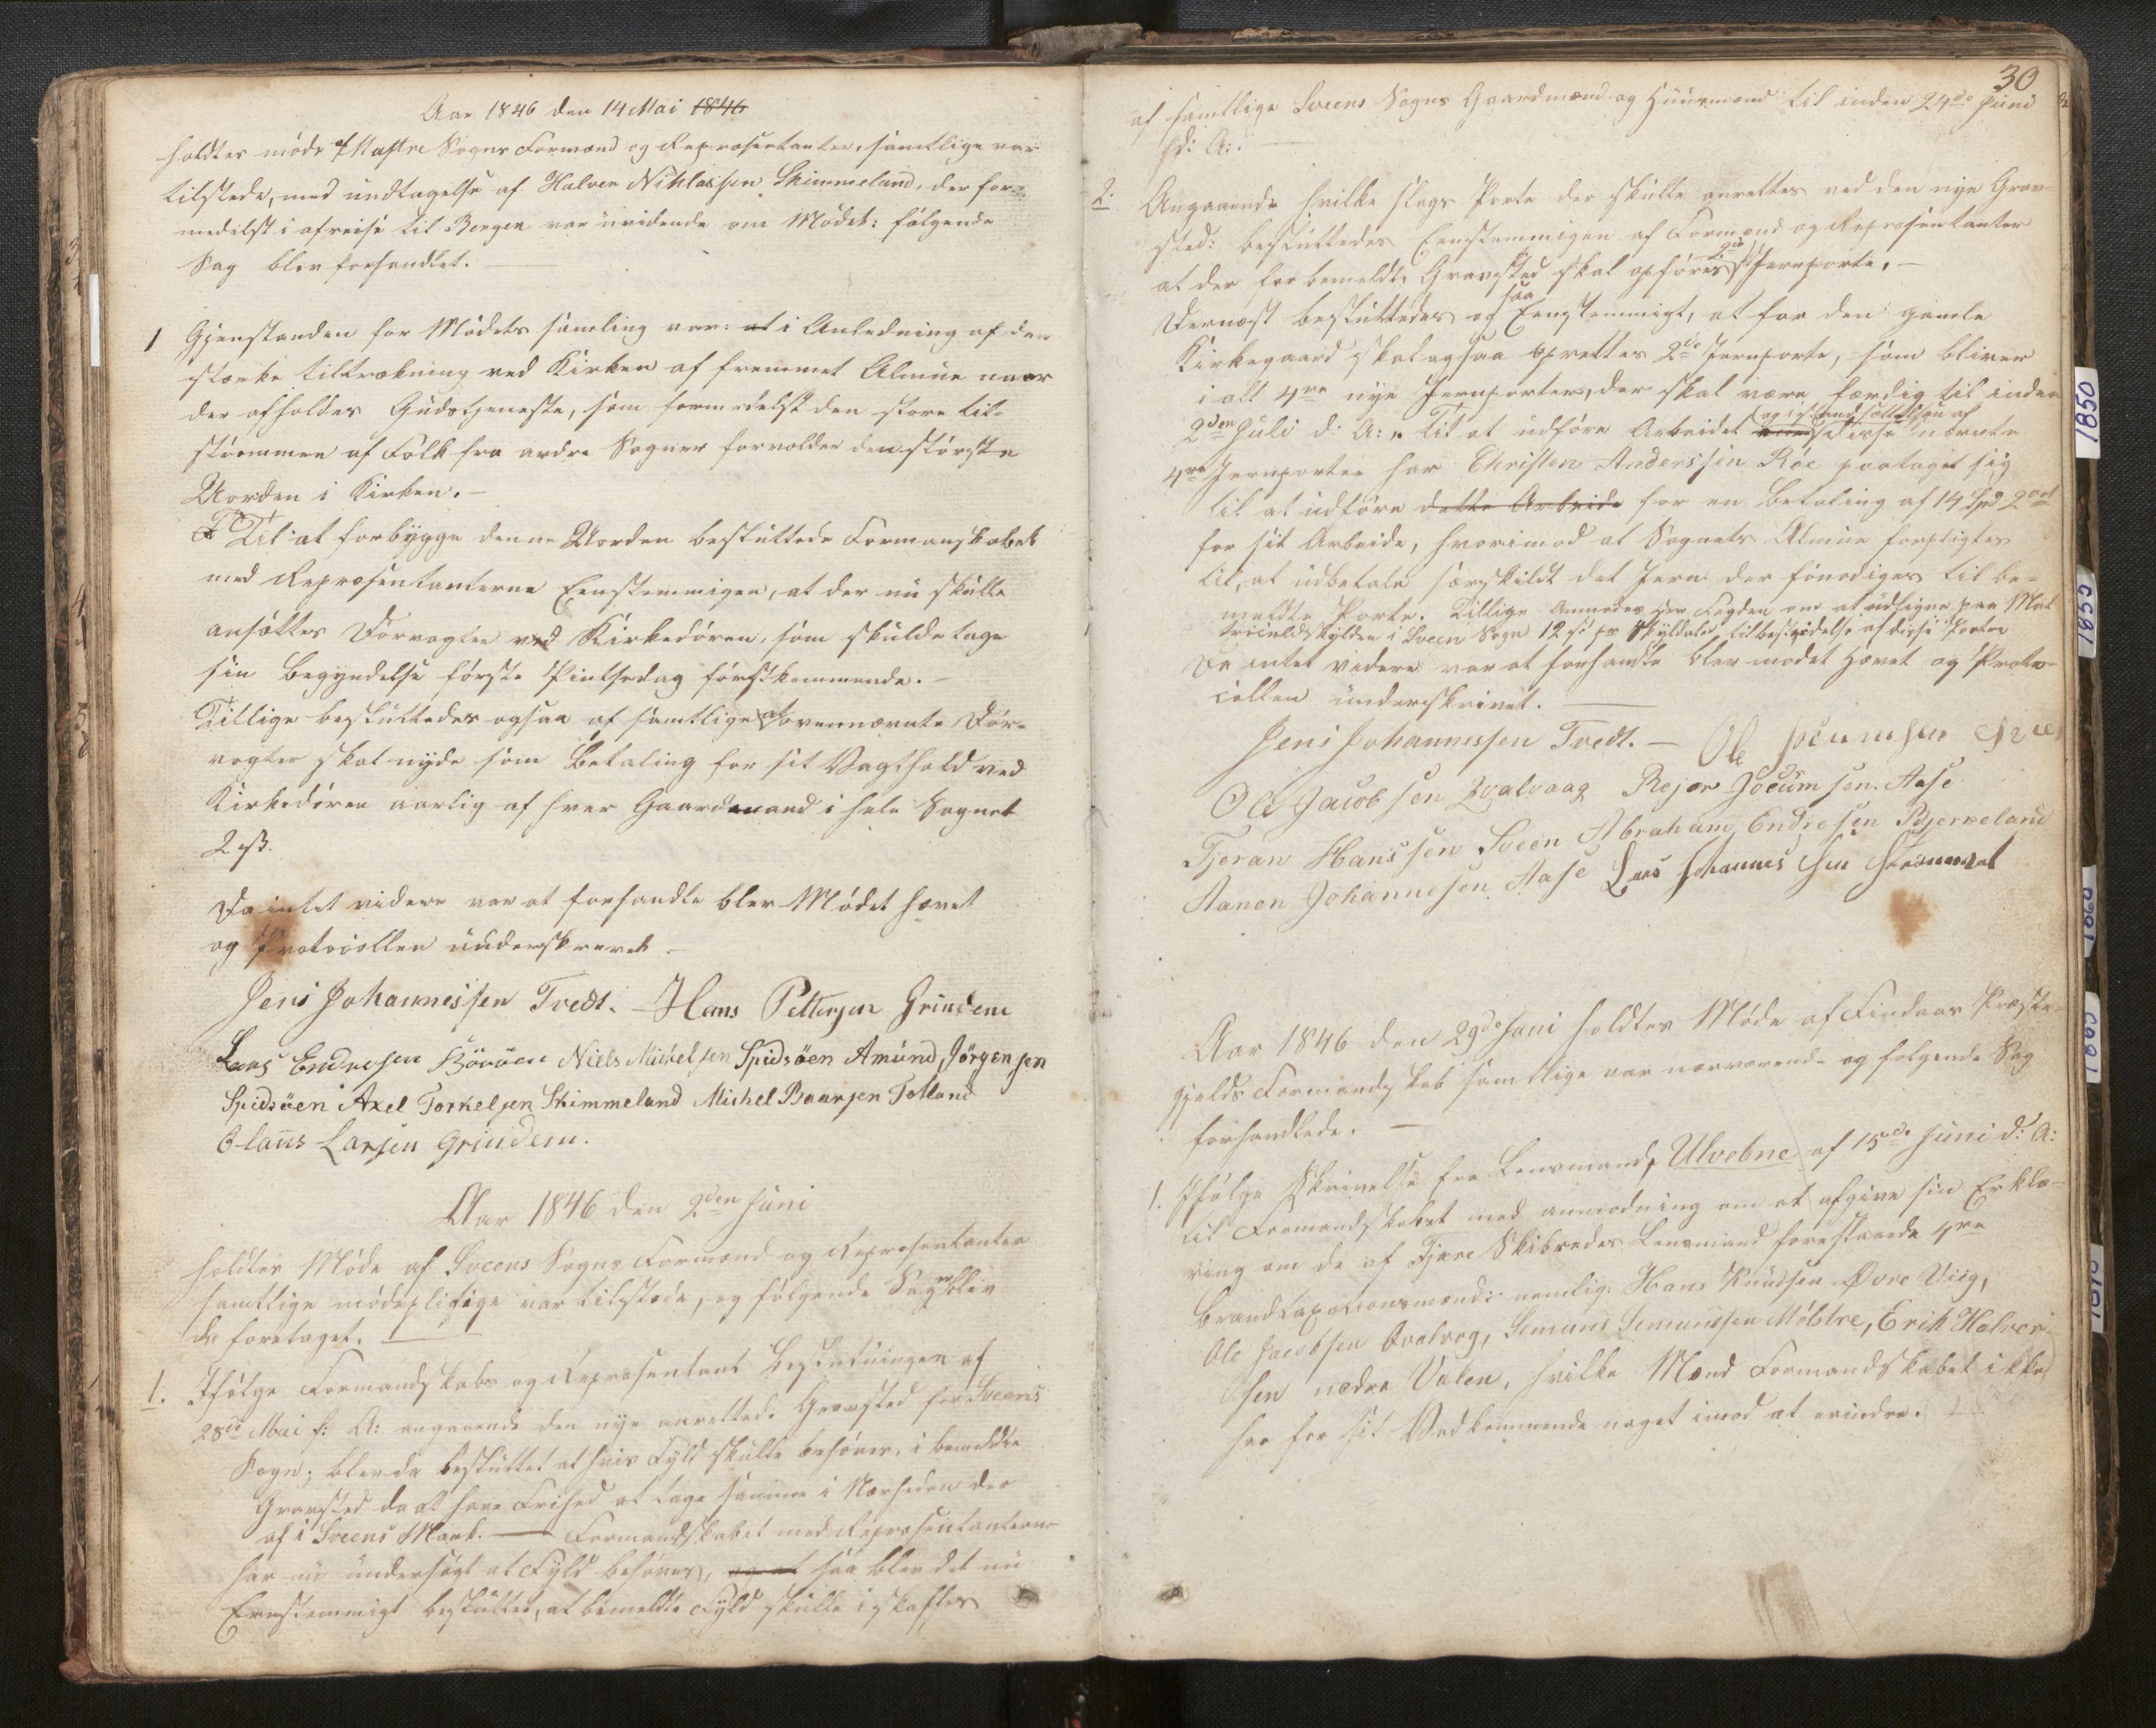 Aar 1846 den 14 Mai 1846
holdtes møde i Mastre Sogns Formænd og Repræsentanter, samtlige var
tilstede, med undtagelse af Halvor Niklassen Skimmeland, der for-
medelst i afreise til Bergen var uvidende om Mødet: følgende
Sag blev forhandlet.
1 Gjenstanden for Mødets samling var: at i Anledning af den
stærke tiltrækning ved Kirken af fremmet Almue naar
der afholdes Gudstjeneste, som formedelst den store til-
strømmen af Folk fra andre Sogner forvolder den største
Uorden i Kirken.
Til at forbygge denne Uorden besluttede Formanskabet
med Repræsentanterne Eenstemmigen, at der nu skulle
ansættes Dørvogter ved Kirkedøren, som skulde tage
sin Begyndelse første Pintsedag førstkommende.
Tillige besluttedes ogsaa af samtlige at ovennævnte Dør-
vogter skal nyde som Betaling for sit Vagthold ved
Kirkedøren aarlig af hver Gaardmand i hele Sognet
2 ß.
Da intet videre var at forhandle blev Mødet hævet
og Protocollen underskrevet.
Jens Johannessen Tvedt. Hans Pettersen Grindem
Lars Endresen Børøen Niels Mickelsen Spidsøen Amund Jörgensen
Spidsøen Axel Torkelsen Skimmeland Michel Baarsen Totland
Claus Larsen Grindem.
Aar 1846 den 2den Juni
holdtes Møde af Sveens Sogns Formænd og Repræsentanter
samtlige mødepligtige var tilstæde, og følgende Sager blev
da foretaget.
1. Ifølge Formandskabs og Repræsentant Beslutningen af
28de Mai f: A: angaaende den nye anrettede Gravsted for Sveens
Sogn; blev da besluttet at hvis Fyld skulle behøves, i bemeldte
Gravsted da at have Frihed at tage samme i Nærheden der
af i Sveens Mark. Formandskabet med Repræsentanterne
har nu undersøgt at Fyld behøves, og at saa blev det nu
Eenstemmigt besluttet, at bemeldte Fyld skulle iskaffes
30
af samtlige Sveens Sogns Gaardmænd og Huusmænd til inden 24de Juni
d: A:.
2. Angaaende hvilke slags Porte der skulle anrettes ved den nye Grav-
sted: besluttedes Eenstemmigen af Formænd og Repræsentanter
at der for bemeldte Gravsted skal opføres 2de Jernporte.
Dernæst besluttedes og saa Eenstemmigt, at for den gamle
Kirkegaard skal ogsaa oprettes 2de Jernporte, som bliver
i alt 4re nye Jernporter, der skal være færdig til inden
2den Juli d: A: Til at udføre Arbeidet og istandsættelsen af disse nævnte
4re Jernporter har Christen Anderssen Röe paataget sig
til at udføre dette Arbeide for en Betaling af 14 Spd 2 ort
for sit Arbeide, hvorimod at Sognets Almue forpligtes
til, at udbetale særskildt det Jern der fornødiges til be-
meldte Porte. Tillige Anmodes Her Fogden om at udligne paa Mat
trikulskylden i Sveen Sogn 12 ß pr Skyldaler til bestridelse af disse Porter
Da intet videre var at forhandle blev mødet hævet og Proto-
collen underskrivet.
Jens Johannessen Tvedt. Ole
Ole Jacobsen Qvalvaag Rejer Jocumsen Aase
Tjeran Hanssen Sveen Abraham Endresen Bjerneland
Aanen Johannesen Aase Lars Johannes Sen
Aar 1846 den 29de Juni holdtes Møde af Findaas Præste-
gjelds Formandskab samtlige var nærværende og følgende Sag
forhandlede.
1. Ifølge Skrivelse fra Lensmand Ulvebne af 15de Juni d: A:
til Formandskabet med anmodning om at afgive sin Erklæ-
ring om de af Fjære Skibredes Lensmand foreslaaede 4re
Brandtaxationsmænd: nemlig: Hans Knudsen Øvre Viig,
Ole Jacobsen Qvalvog, Simund Simunssen Møltre, Erik Halvor
sen nedre Valen, hvilke Mænd Formandskabet ikke
har for sit Vedkommende noget imod at erindre.
1850
1855
1860
1865
1870